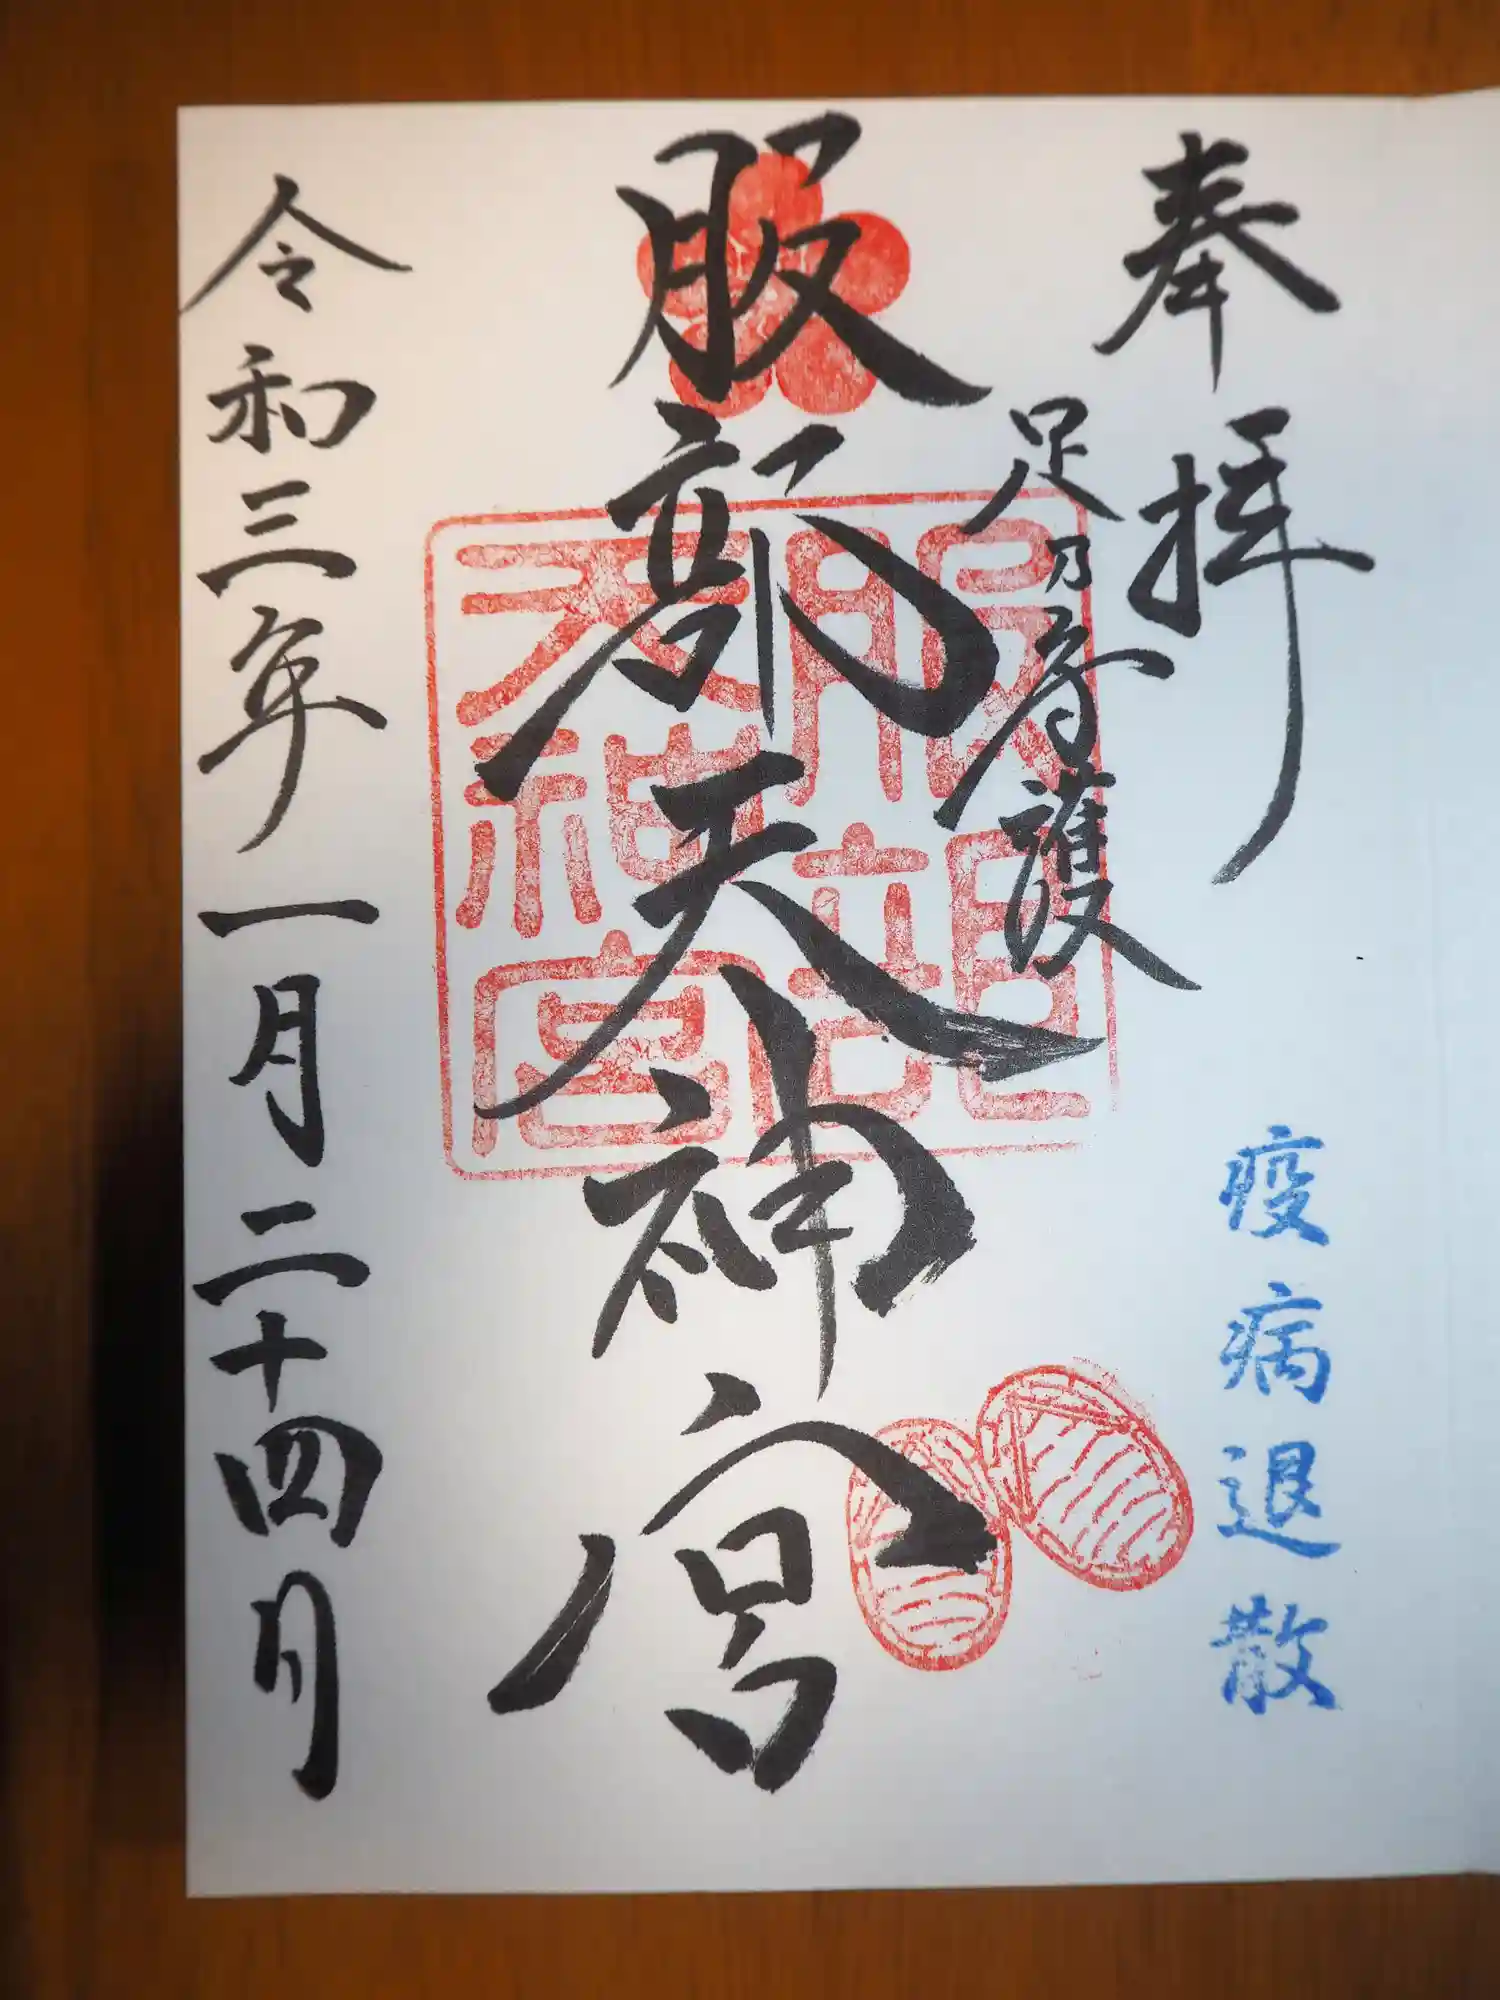 奉拝
足乃守護
服部天神宮
服部
天神宮
令和三年一月二十四日
疫病退散